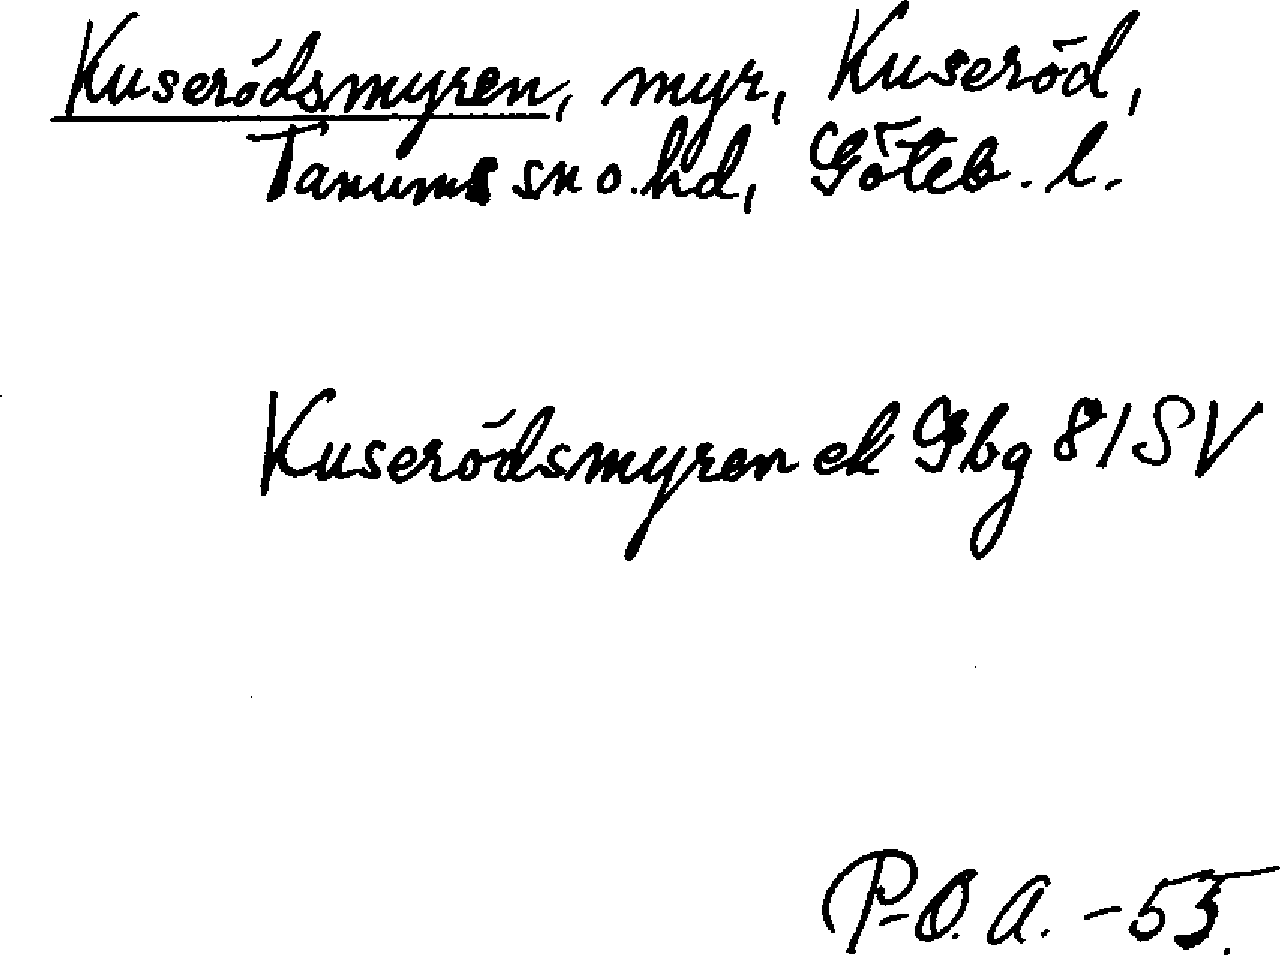 Kuserödsmyren, myr, Kuseröd,
Tanums sn o. hd, Göteb. l.
Kuserödsmyren ek Gbg 81 SV
P-O. A. -55.